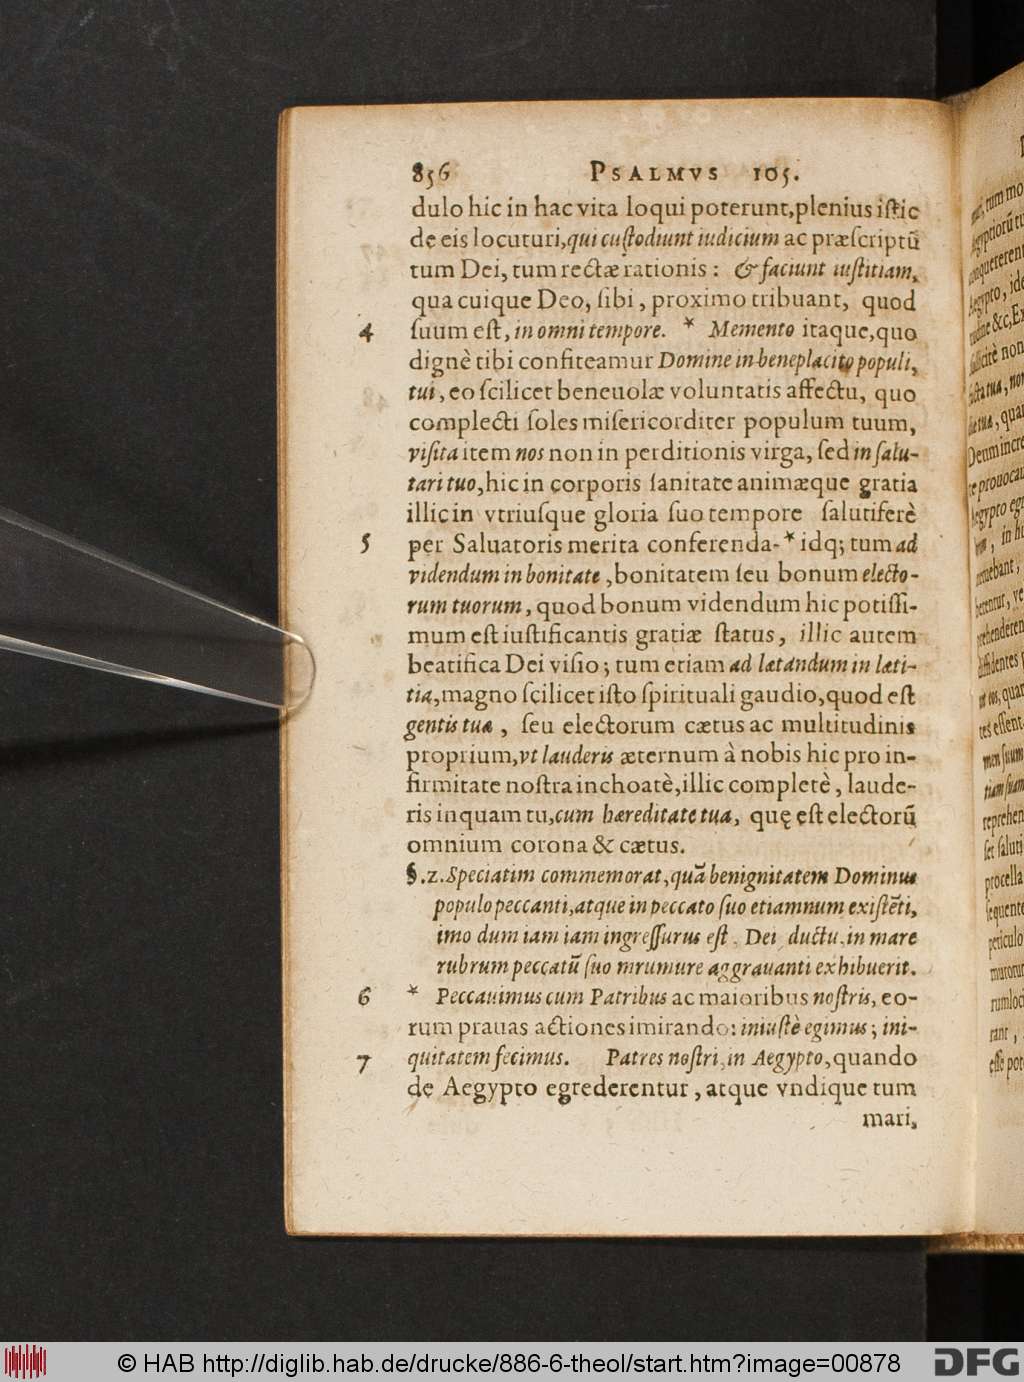 856 PSALMVS 105.
dulo hic in hac vita loqui poterunt, plenius iſtic
de eis locuturi, qui cuſtodiunt iudicium ac præſcriptũ
tum Dei, tum rectæ rationis: & faciunt iuſtitiam,
qua cuique Deo, ſibi, proximo tribuant, quod
4 ſuum eſt, in omni tempore. * Memento itaque, quo
dignè tibi confiteamur Domine in beneplacito populi,
tui, eo ſcilicet beneuolæ voluntatis affectu, quo
complecti ſoles miſericorditer populum tuum,
viſita item nos non in perditionis virga, ſed in ſalu-
tari tuo, hic in corporis ſanitate animæque gratia
illic in vtriuſque gloria ſuo tempore ſalutiferè
5 per Saluatoris merita conferenda-* idq; tum ad
videndum in bonitate, bonitatem ſeu bonum electo-
rum tuorum, quod bonum videndum hic potiſſi-
mum eſt iuſtificantis gratiæ ſtatus, illic autem
beatifica Dei viſio; tum etiam ad lætandum in læti-
tia, magno ſcilicet iſto ſpirituali gaudio, quod eſt
gentis tuæ, ſeu electorum cætus ac multitudinis
proprium, vt lauderis æternum à nobis hic pro in-
firmitate noſtra inchoatè, illic completè, laude-
ris inquam tu, cum hæreditate tua, quę eſt electorũ
omnium corona & cætus.
§.2. Speciatim commemorat, quã benignitatem Dominus
populo peccanti, atque in peccato ſuo etiamnum exiſtẽti,
imo dum iam iam ingreſſurus eſt Dei ductu, in mare
rubrum peccatũ ſuo mrumure aggrauanti exhibuerit.
6 * Peccauimus cum Patribus ac maioribus noſtris, eo-
rum prauas actiones imirando: iniuſtè egimus; ini-
7 quitatem fecimus. Patres noſtri, in Aegypto, quando
de Aegypto egrederentur, atque vndique tum
mari,
© HAB http://diglib.hab.de/drucke/886-6-theol/start.htm?image=00878
DFG